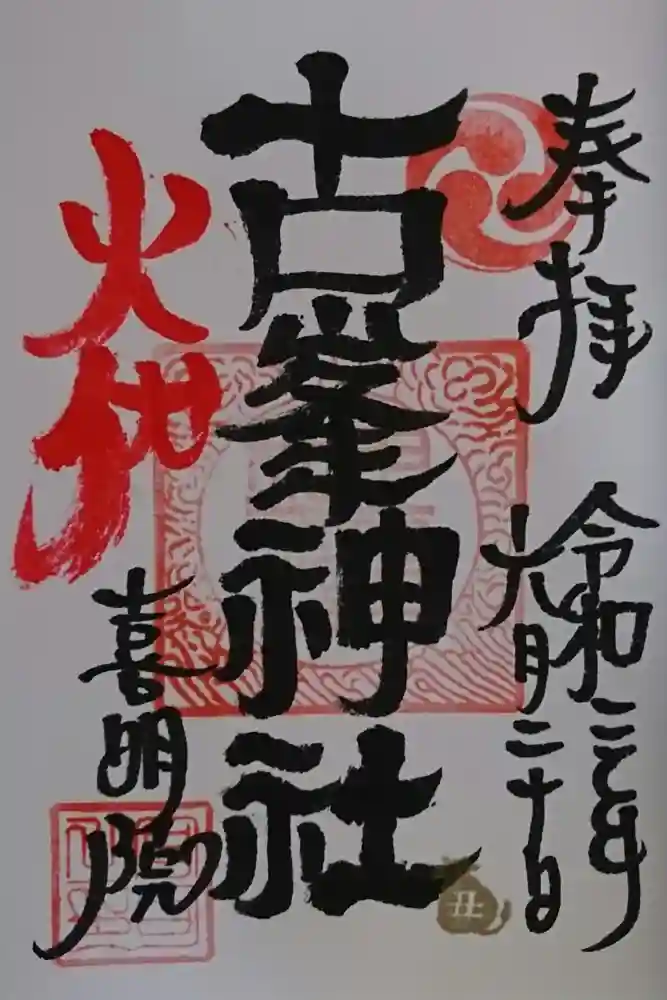 奉拝
令和三年
六月二十日
古峯神社
丑
火
喜明院